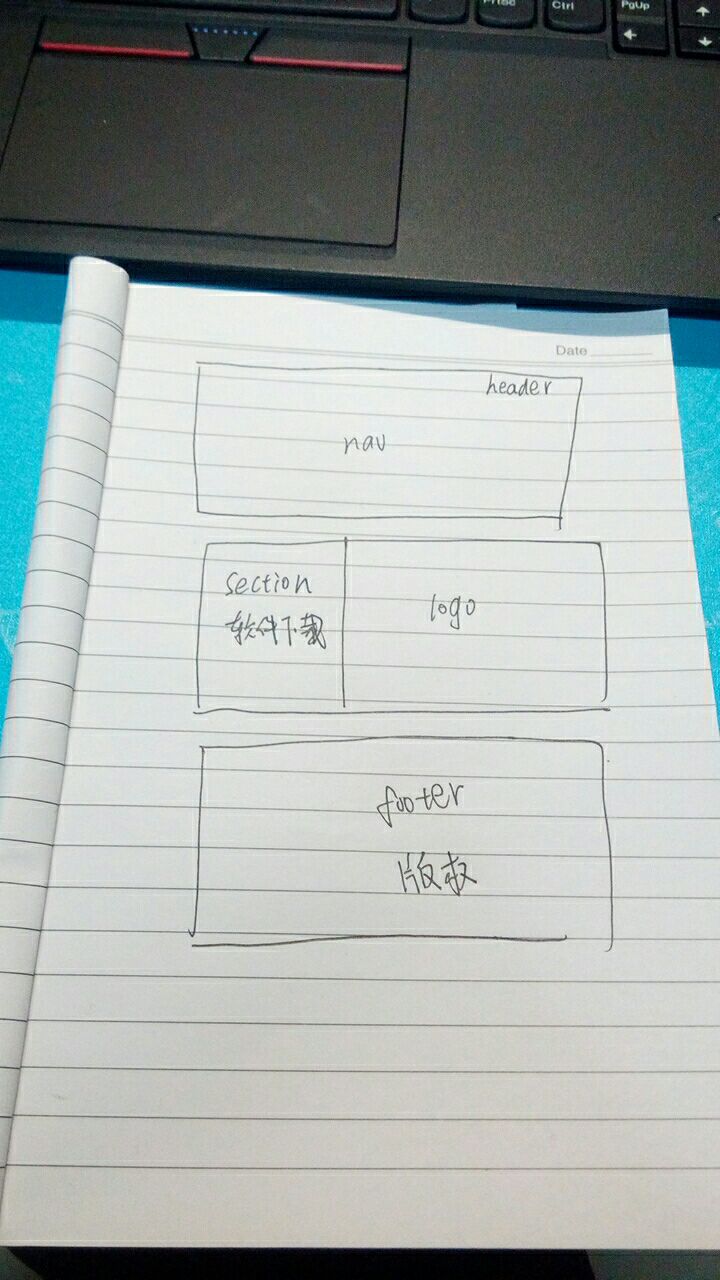 PrtSc
Ctrl
PgUp
Date
header
nav
section
软件下载
logo
footer
版权